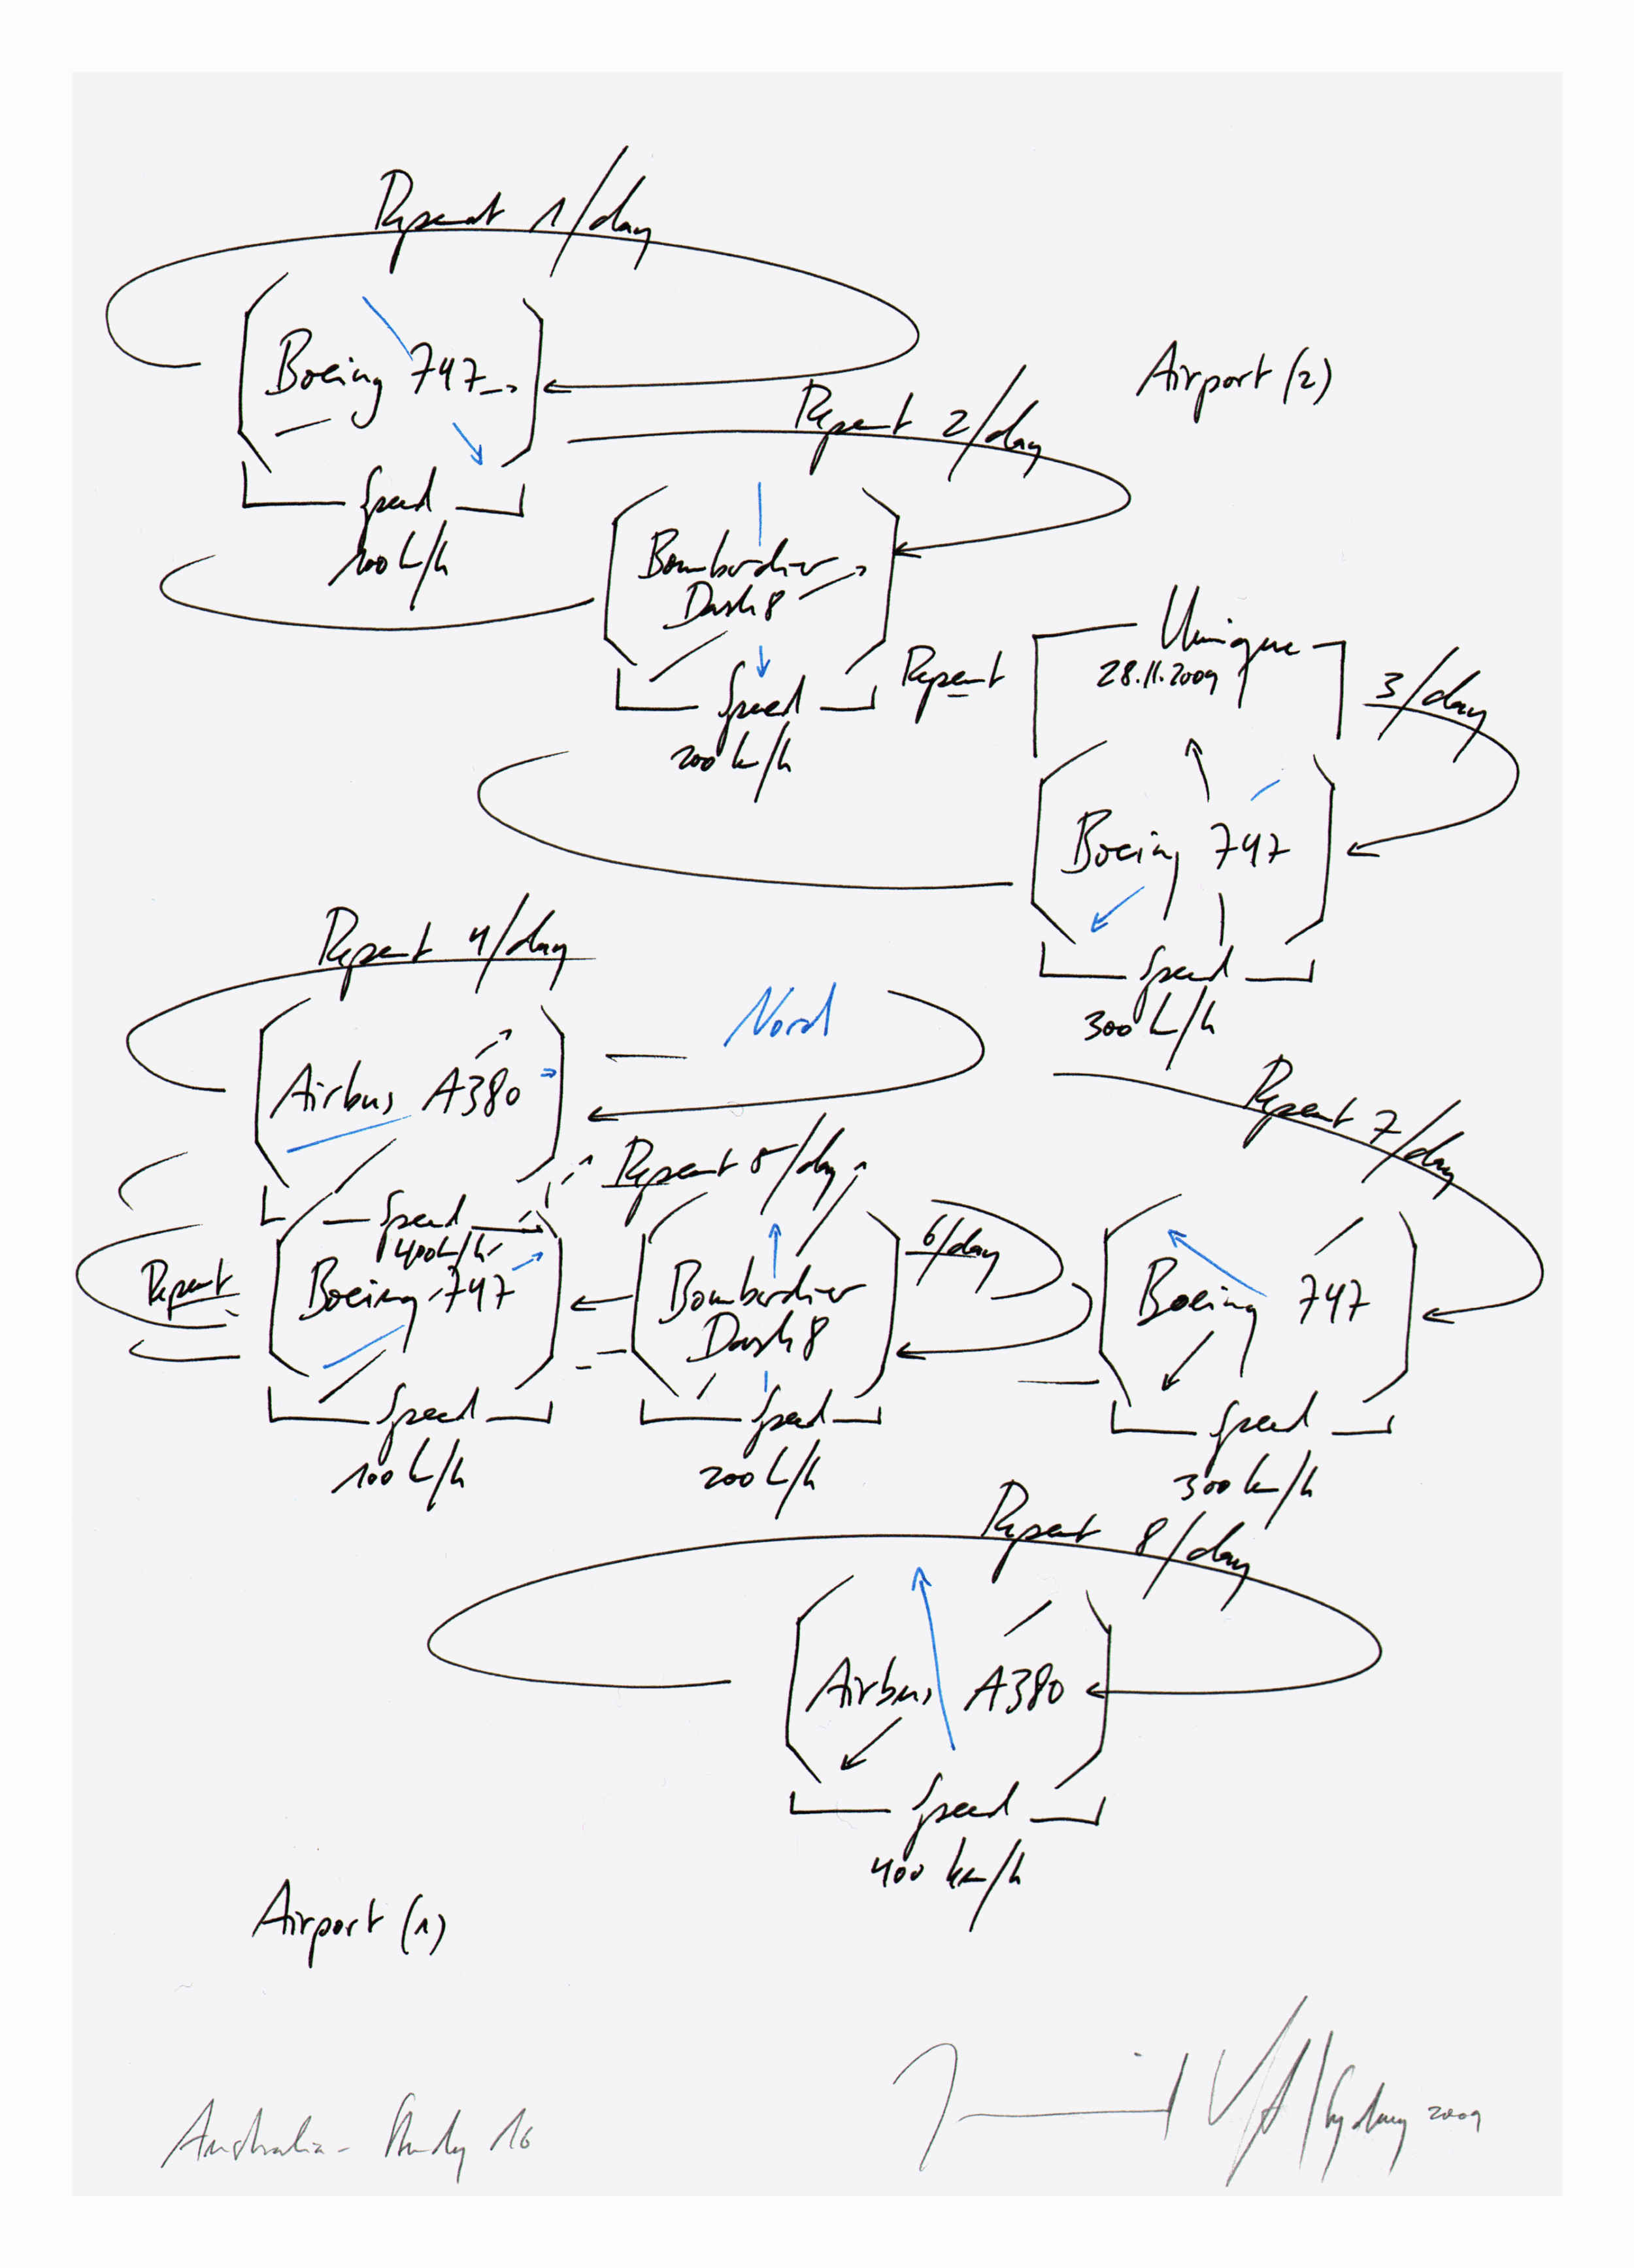 Repeat 1/day
Boeing 747
Speed
100 k/h
Airport (2)
Repeat 2/day
Bombardier
Dash 8
Speed
200 k/h
Repeat
Unique
28.11.2009
3/day
Boeing 747
Speed
300 k/h
Repeat 4/day
Airbus A380
Speed
400 k/h
Nord
Repeat 5/day
Boeing 747
Speed
100 k/h
Repeat
6/day
Bombardier
Dash 8
Speed
200 k/h
Repeat 7/day
Boeing 747
Speed
300 k/h
Repeat 8/day
Airbus A380
Speed
400 km/h
Airport (1)
Australia - Study 16
Sydney 2009